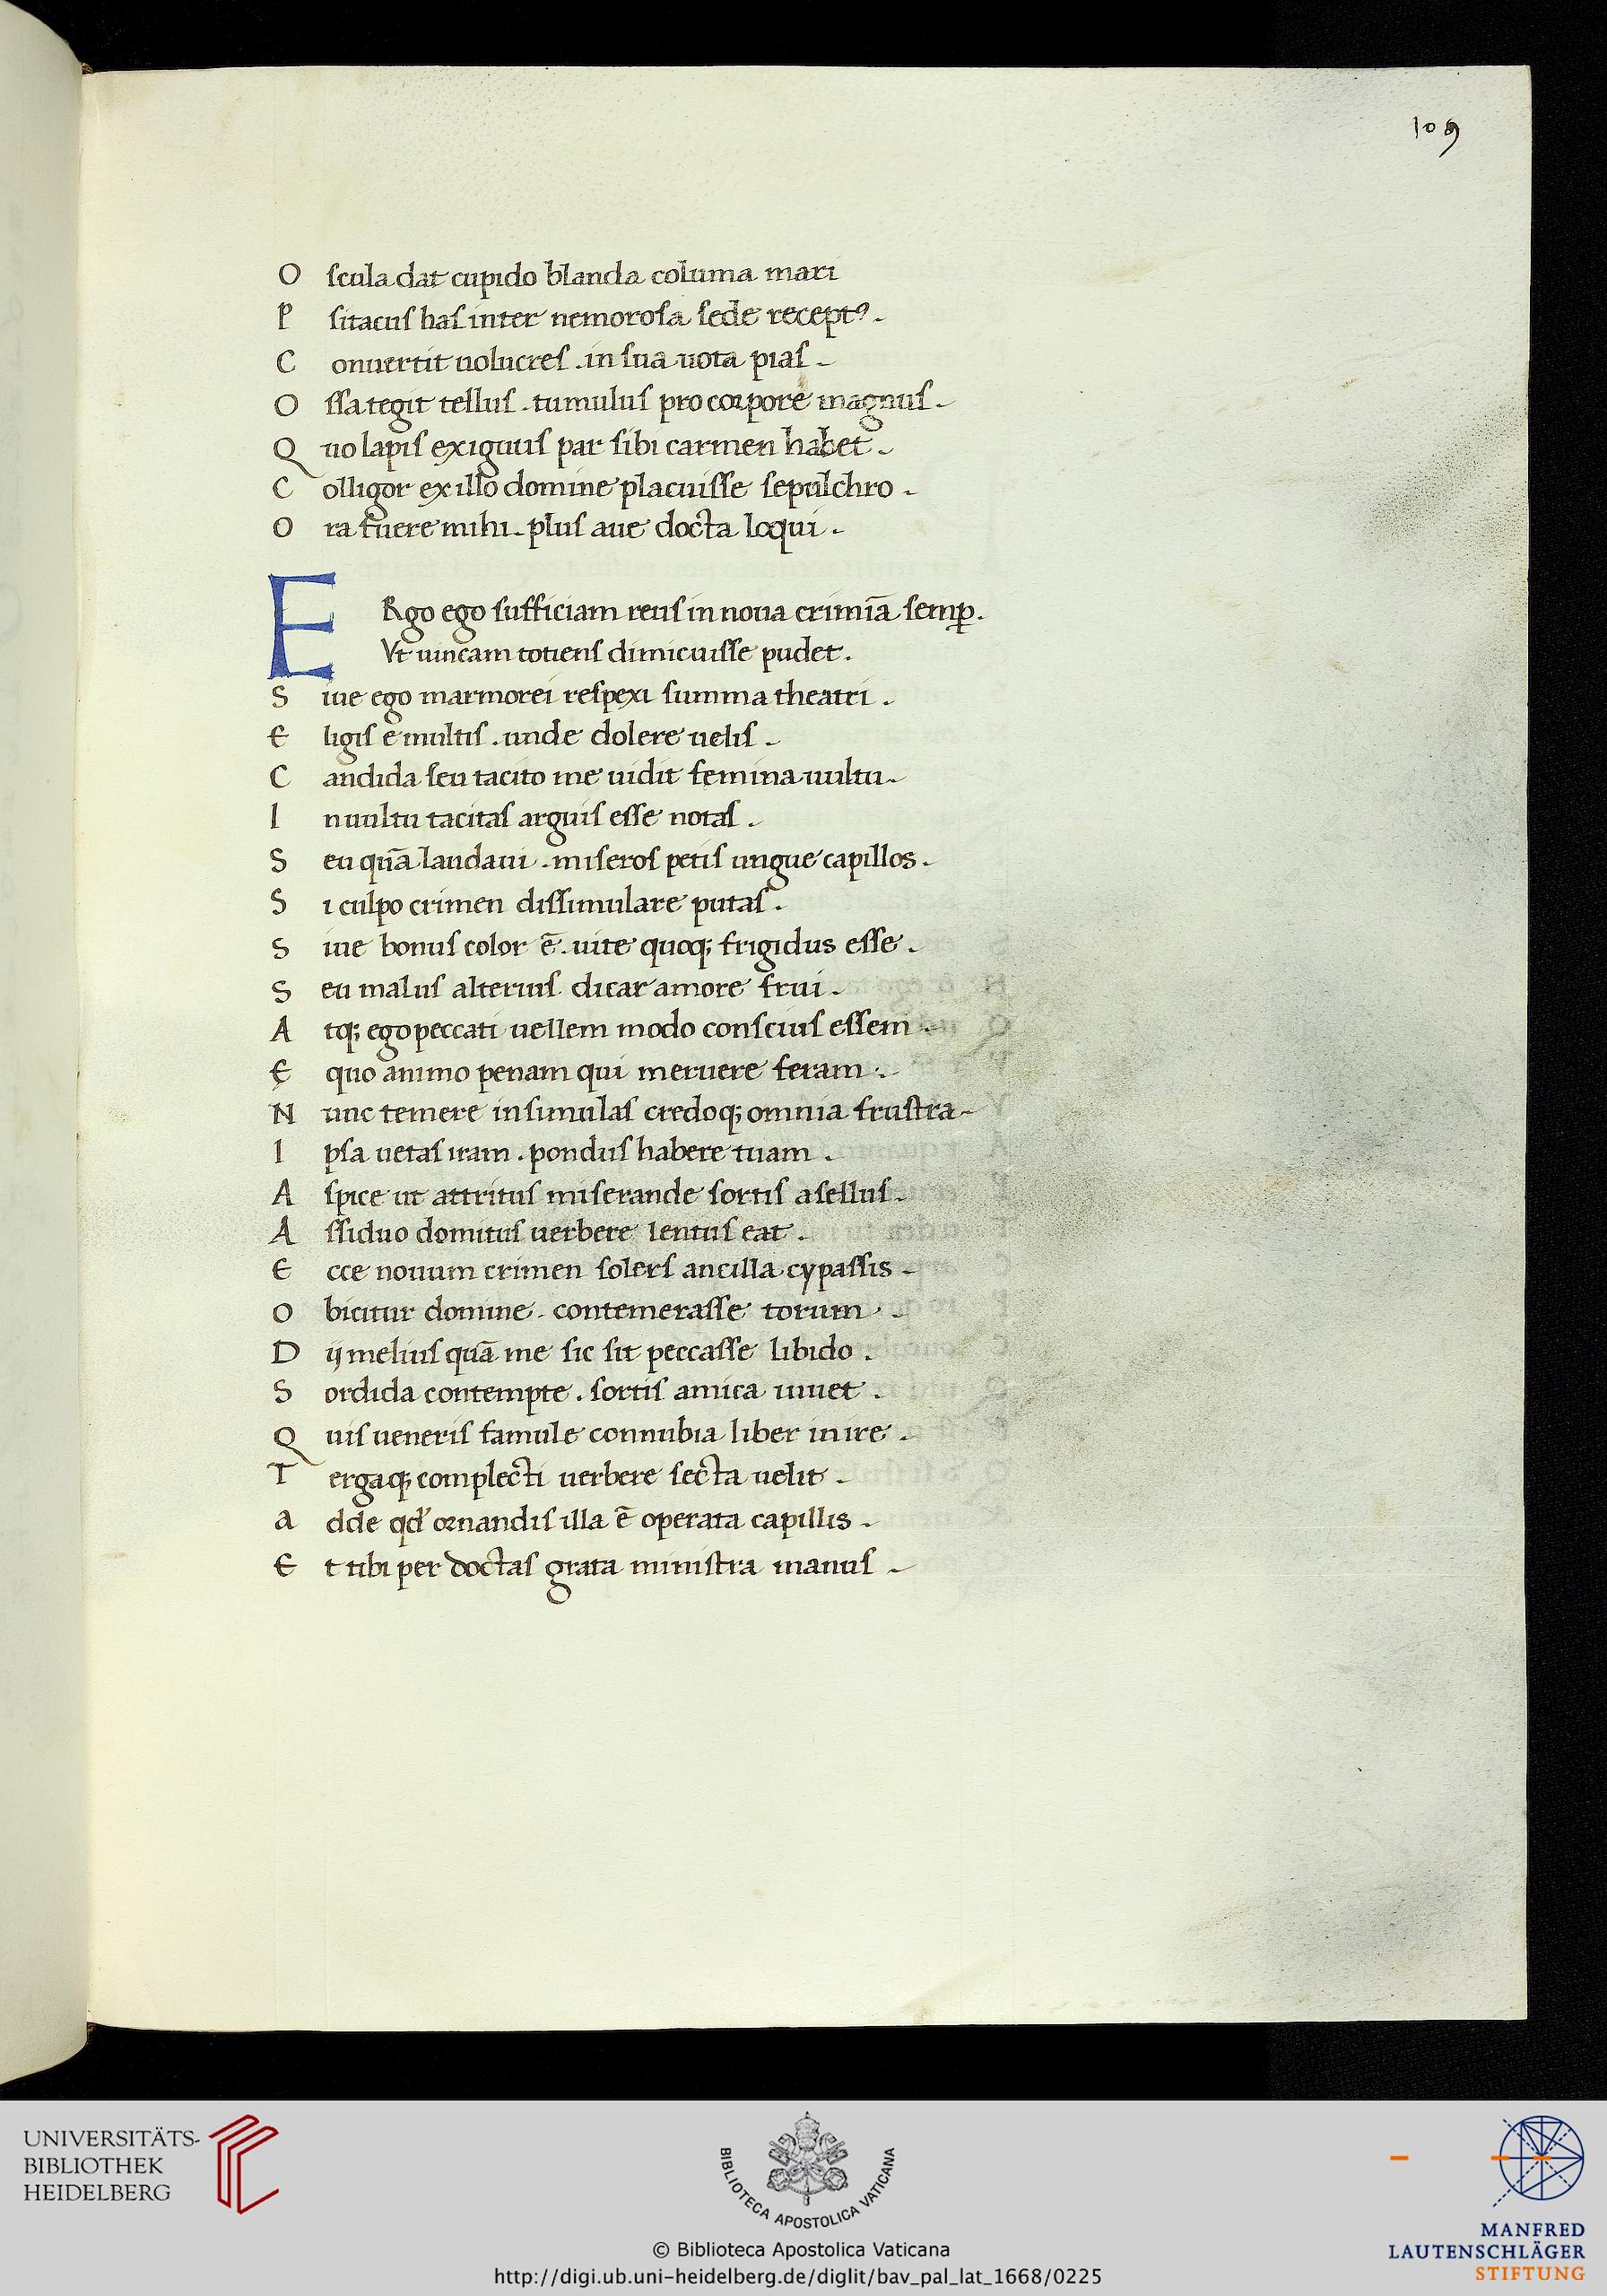 109
O scula dat cupido blanda columa mari
P sitacus has inter nemorosa sede receptꝰ.
C onuertit uolucres . in sua uota pias .
O ssa tegit tellus . tumulus pro corpore magnus .
Q uo lapis exiguus par sibi carmen habet .
C olligor ex illo domine placuisse sepulchro .
O ra fuere mihi . plus aue docta loqui .
E Rgo ego sufficiam reus in noua crimīa semꝑ .
Vt uincam totiens dimicuisse pudet .
S iue ego marmorei respexi summa theatri .
E ligis e multis . unde dolere uelis .
C andida seu tacito me uidit femina uultu .
I n uultu tacitas arguis esse notas .
S eu quā laudaui . miseros petis ungue capillos .
S i culpo crimen dissimulare putas .
S iue bonus color ē . uite quoqꝫ frigidus esse .
S eu malus alterius dicar amore frui .
A tqꝫ ego peccati uellem modo conscius essem .
E quo animo penam qui meruere feram .
N unc temere insimulas credoqꝫ omnia frustra .
I psa uetas iram . pondus habere tuam .
A spice ut attritus miserande sortis asellus .
A ssiduo domitus uerbere lentus eat .
E cce nouum crimen solers ancilla cypassis .
O bicitur domine . contemerasse torum .
D ij melius quā me sic sit peccasse libido .
S ordida contempte . sortis amica iuuet .
Q uis ueneris famule connubia liber inire .
T ergaqꝫ complecti uerbere secta uelit .
a dde qd' ornandis illa ē operata capillis .
E t tibi per doctas grata ministra manus .
UNIVERSITÄTS-
BIBLIOTHEK
HEIDELBERG
BIBLIOTECA APOSTOLICA VATICANA
© Biblioteca Apostolica Vaticana
http://digi.ub.uni-heidelberg.de/diglit/bav_pal_lat_1668/0225
MANFRED
LAUTENSCHLÄGER
STIFTUNG